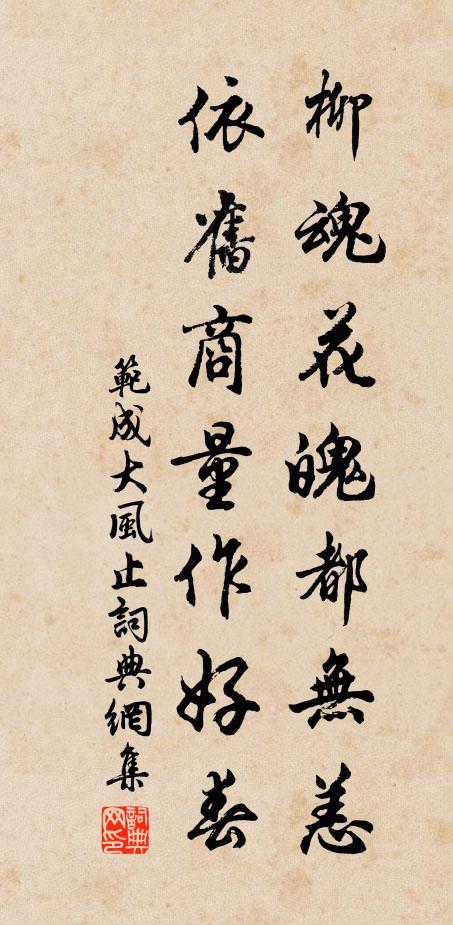 柳魂花魄都無恙
依舊商量作好春
範成大風止詞典網集
詞典网印